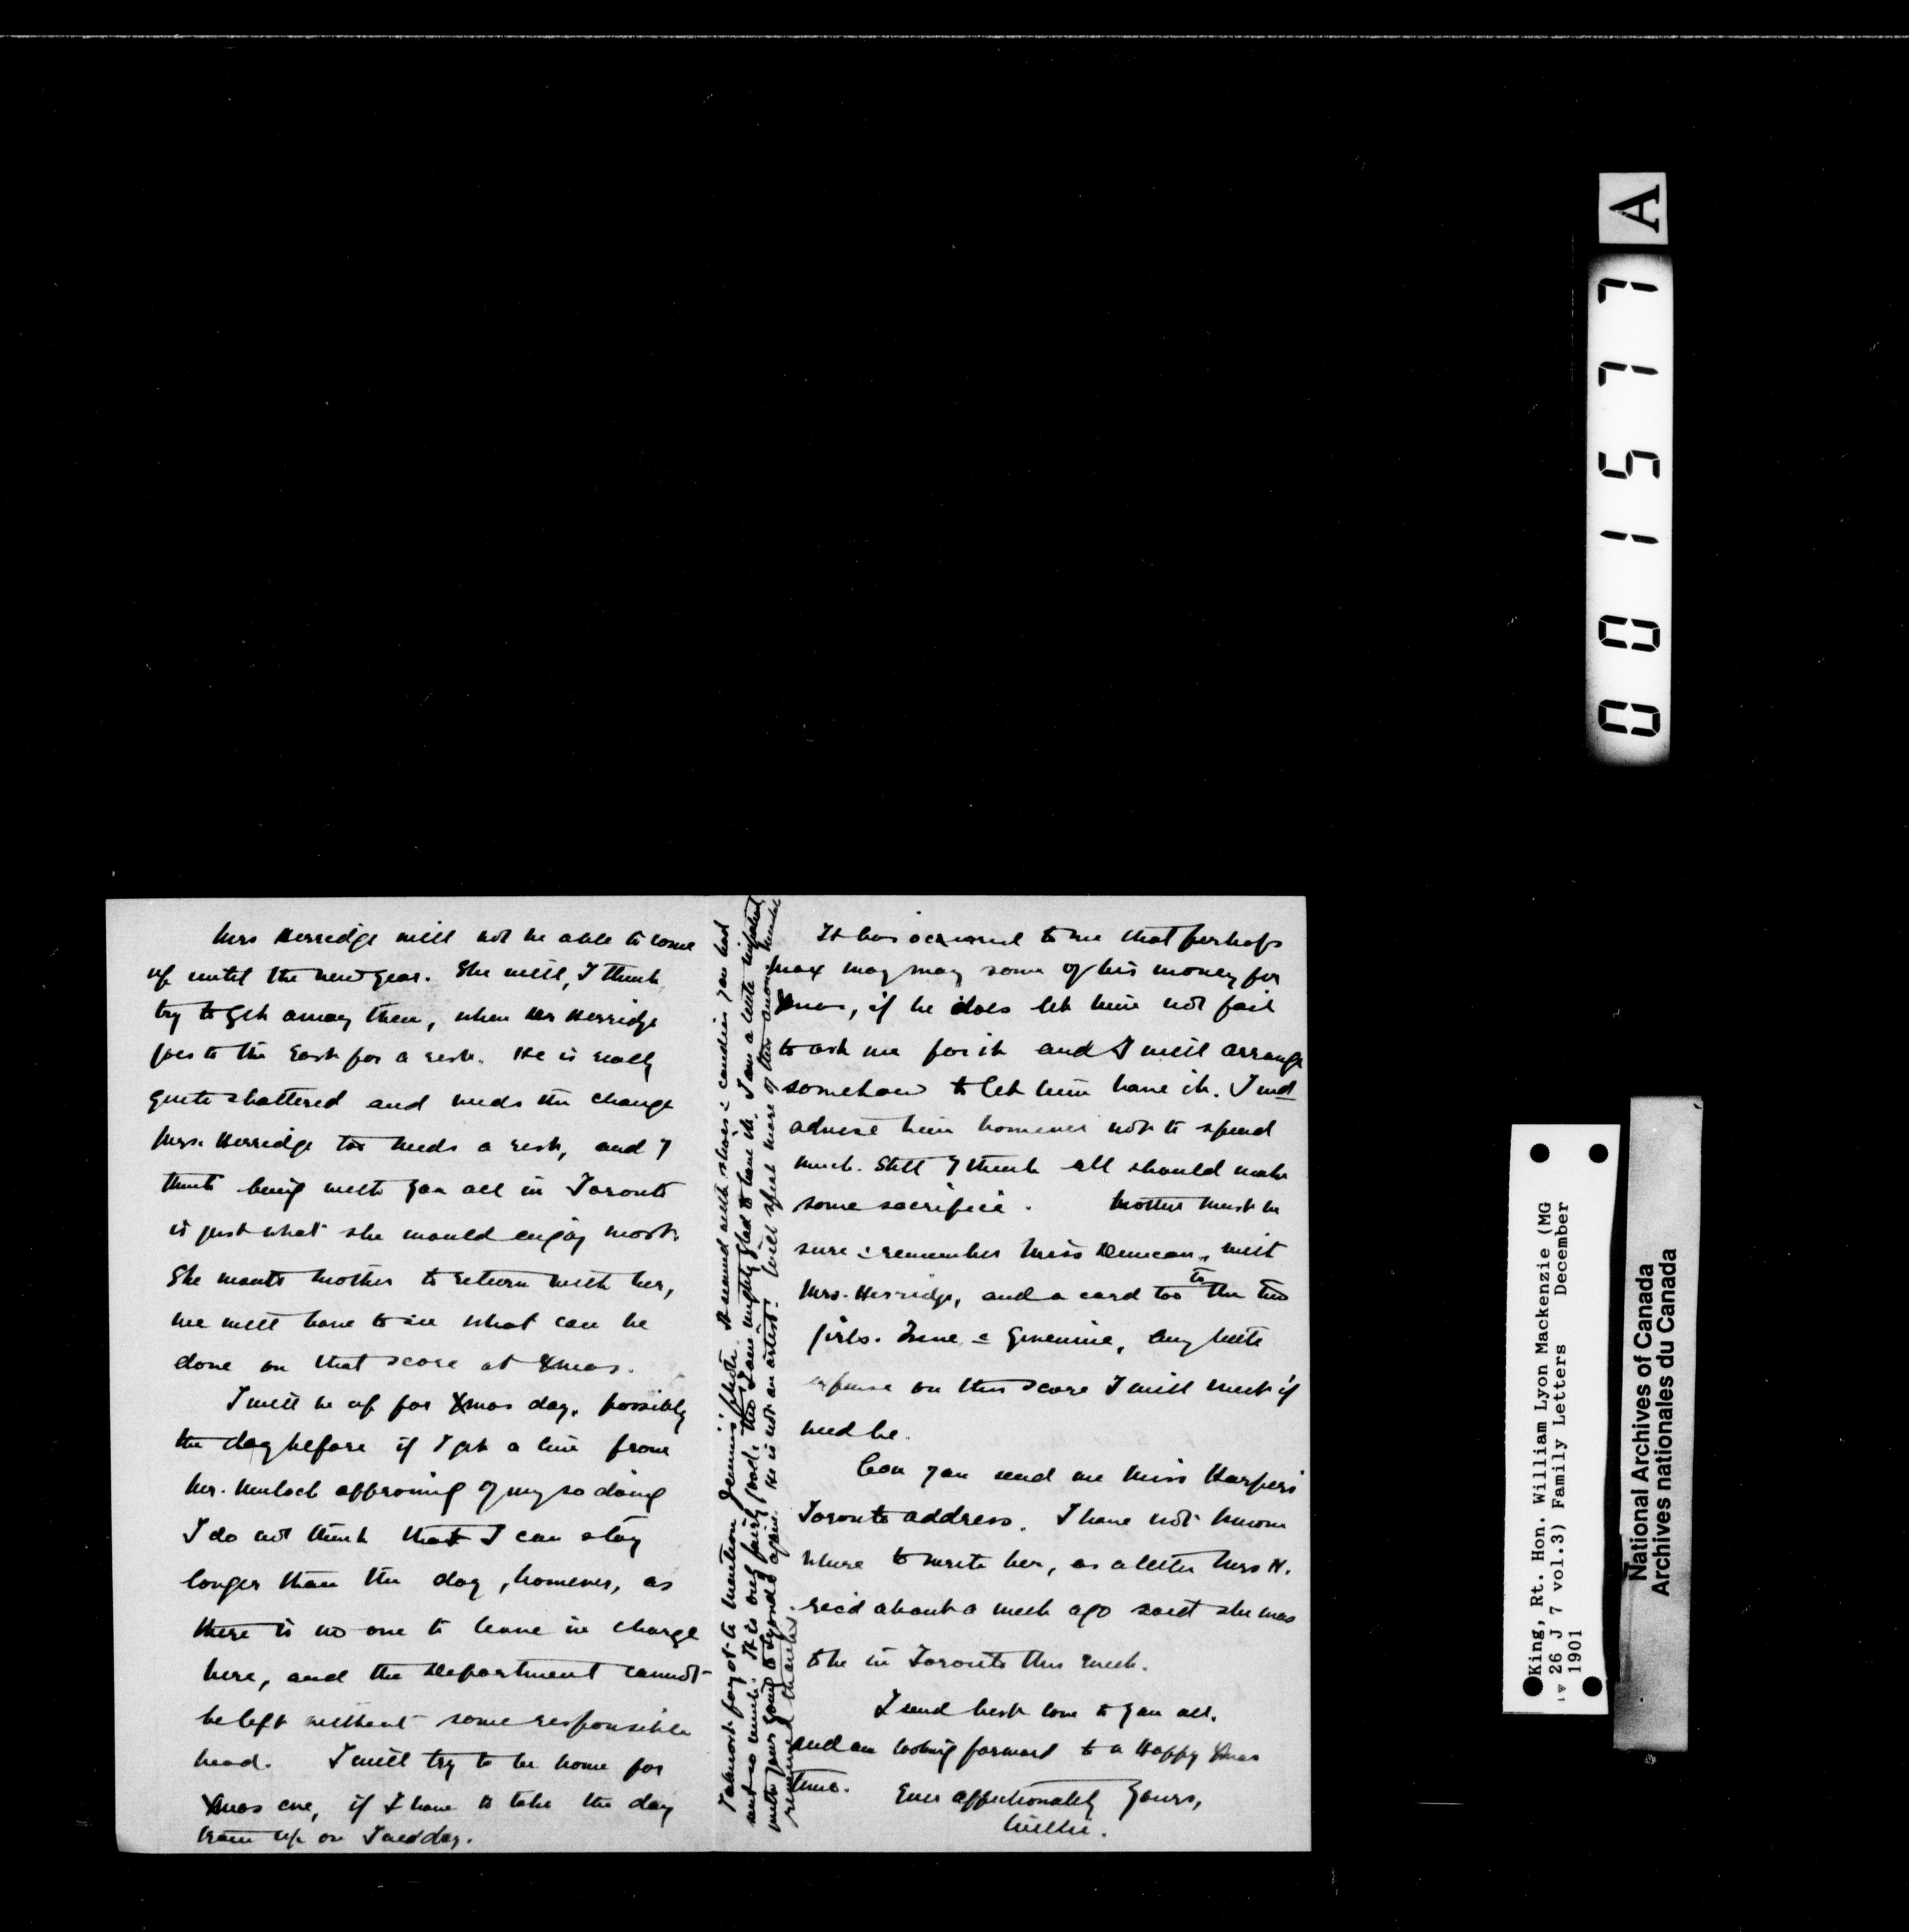 Mrs Herridge will not be able to come
up until the new year. She will, I think
try to get away then, when Mr Herridge
goes to the East for a rest. He is really
quite shattered and needs the change
Mrs. Herridge too needs a rest, and I
think being with you all in Toronto
is just what she would enjoy most.
She wants mother to return with her,
we will have to see what can be
done on that score at Xmas.
I will be up for Xmas day, possibly
the day before if I get a line from
Mr. Mulock approving of my so doing
I do not think that I can stay
longer than the day, however, as
there is no one to leave in charge
here, and the Department cannot
be left without some responsible
head. I will try to be home for
Xmas eve, if I have to take the day
train up on Tuesday.
I almost forgot to mention Jennie's photo. It seemed with the candies you had
sent so much. It is only fairly good, tho' I am mighty glad to have it. I am a little
with your going to Lyonde again. He is not an artist. Will speak more of this
renewed thanks.
It has occurred to me that perhaps
Max may may some of his money for
Xmas, if he does let him not fail
to ask me for it and I will arrange
somehow to let him have it. I wd
advise him however not to spend
much. Still I think all should make
some sacrifice. Mother must be
sure & remember Miss Duncan, with
Mrs. Herridge, and a card too to the two
girls. any little
expense on this score I will meet if
need be.
Can you send me Miss Harper's
Toronto address. I have not known
where to write her, as a letter Mrs H.
rec'd about a week ago said she was
to be in Toronto this week.
I send best love to you all,
and am looking forward to a Happy Xmas
time. Ever affectionately yours,
Willie.
A
0 0 1 5 7 7
King, Rt. Hon. William Lyon Mackenzie (MG
26 J 7 vol.3) Family Letters December
1901
National Archives of Canada
Archives nationales du Canada